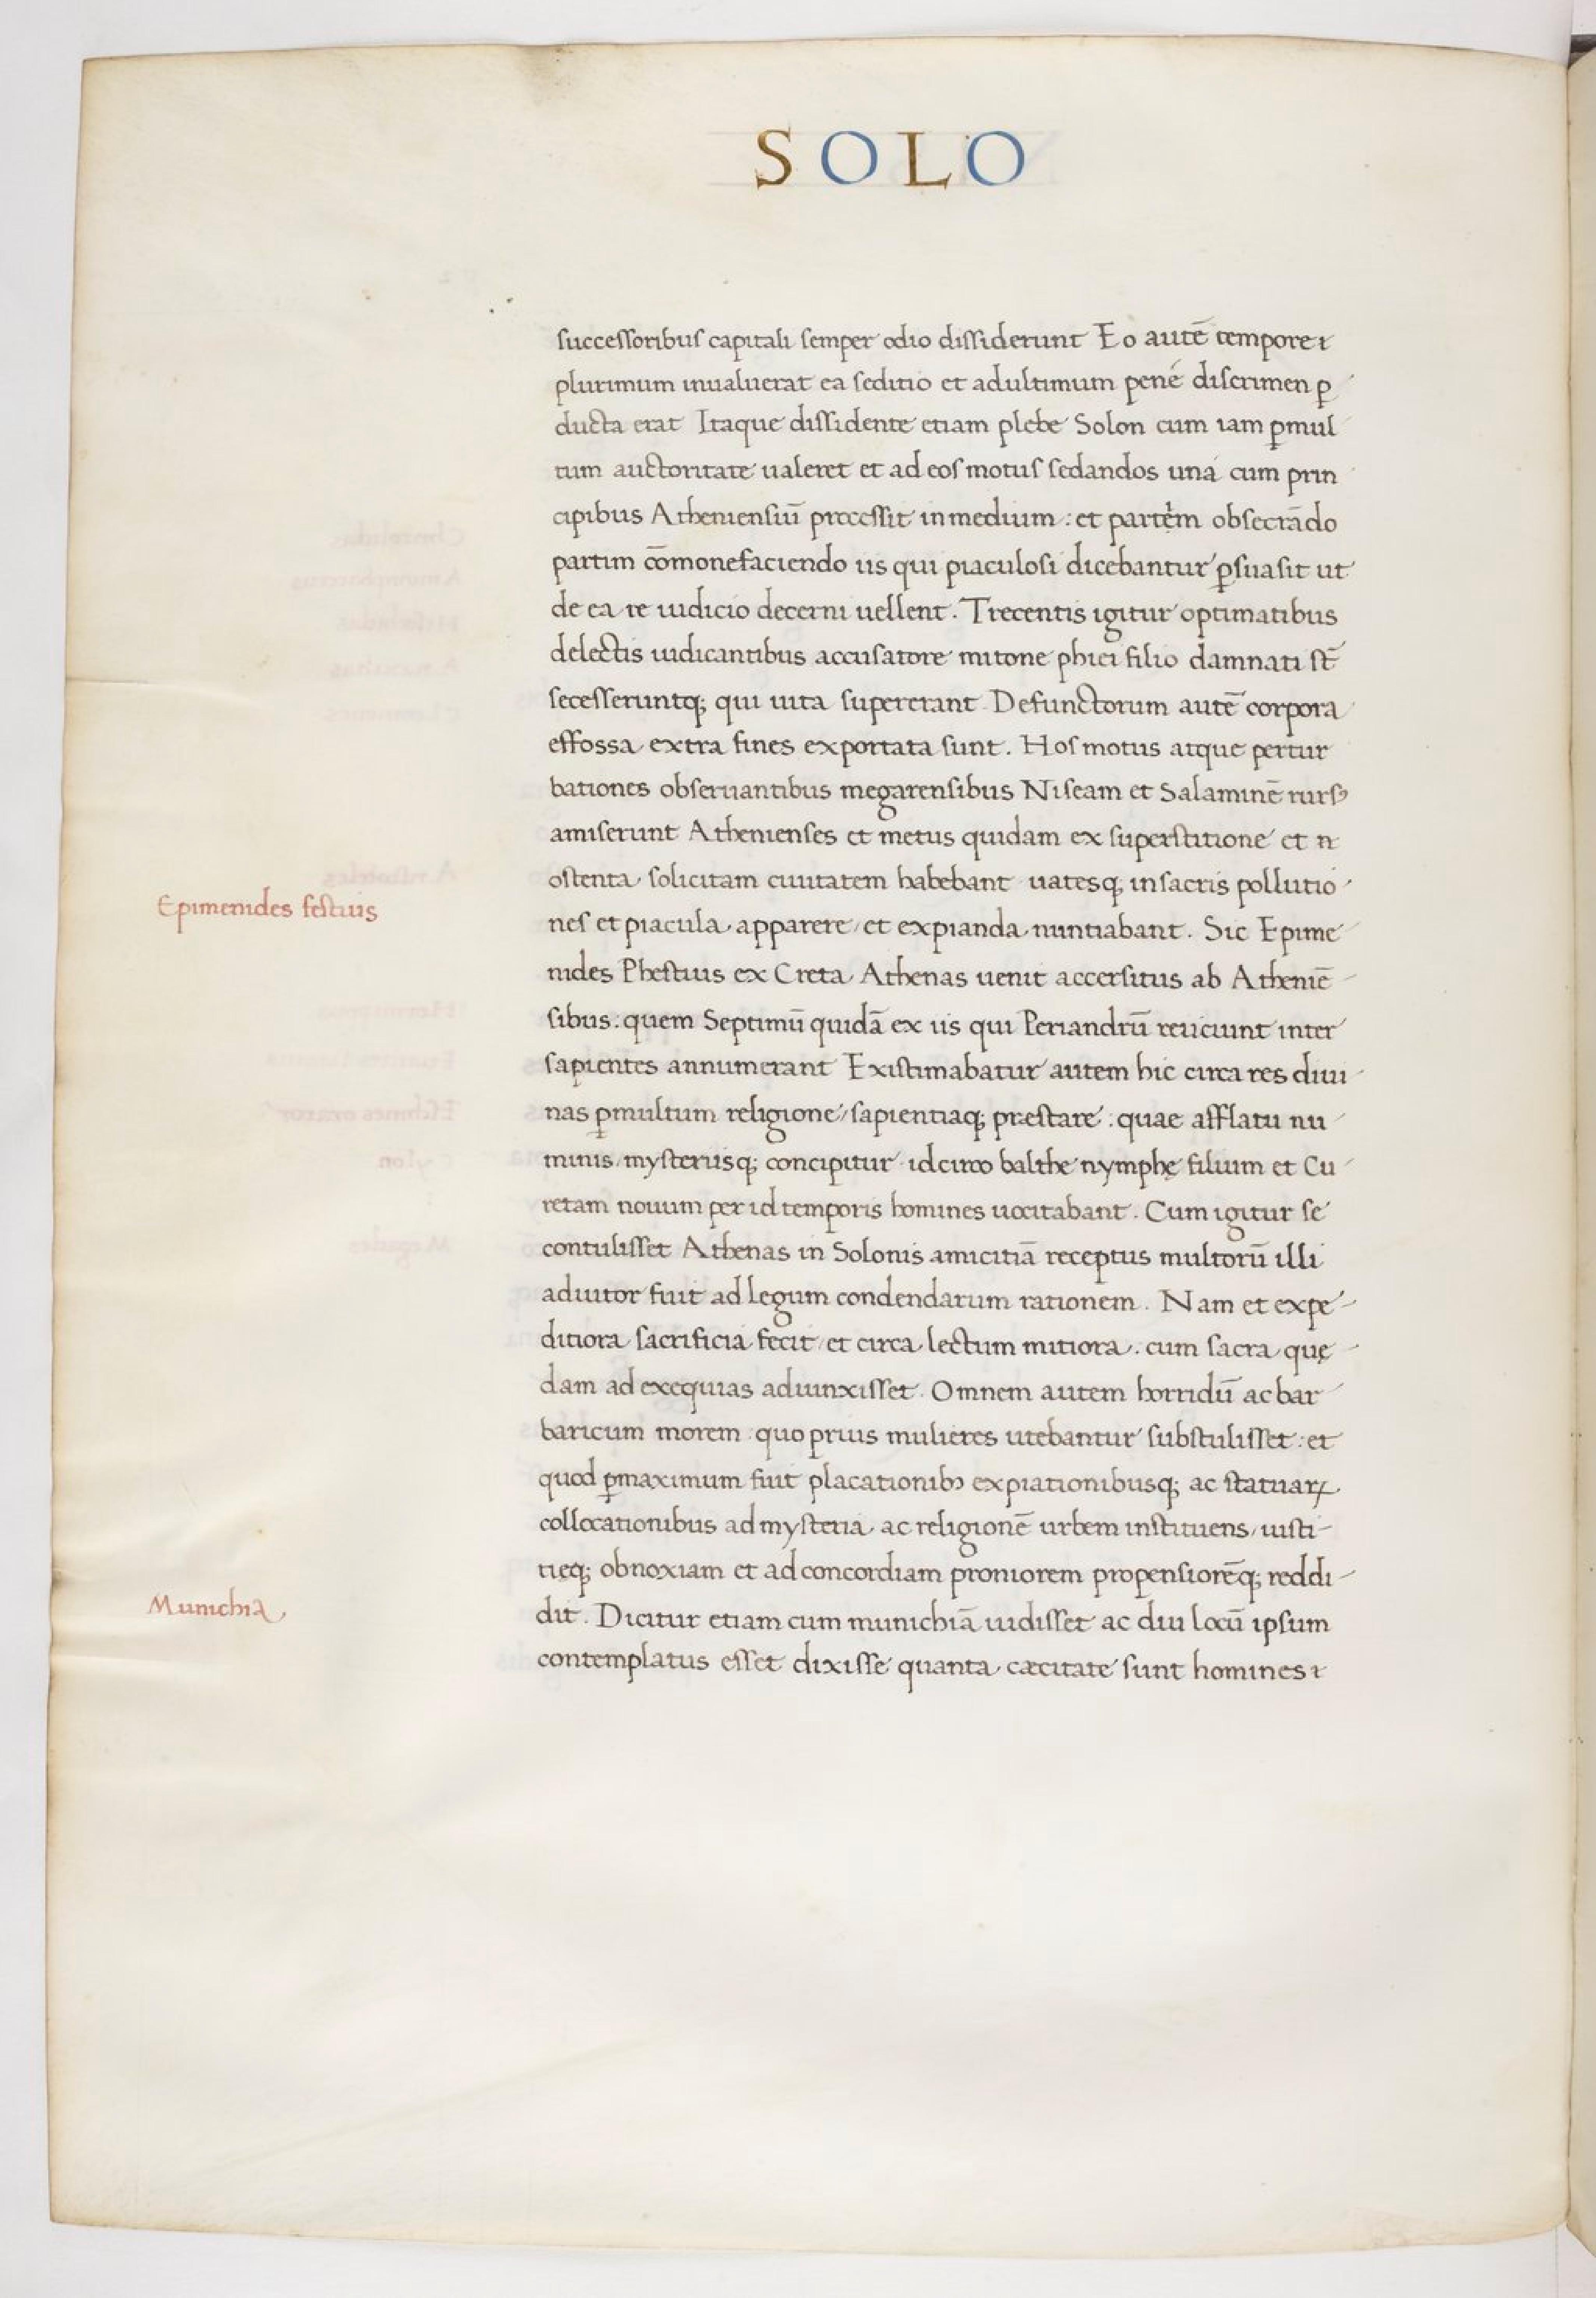 SOLO
successoribus capitali semper odio dissiderunt Eo autē tempore
plurimum inualuerat ea seditio et adultimum pené discrimen ꝑ
ducta erat Itaque dissidente etiam plebe Solon cum iam ꝑmul
tum auctoritate ualeret et ad eos motus sedandos uná cum prin
cipibus Atheniensiū processit in medium : et partim obsecrādo
partim cōmonefaciendo iis qui piaculosi dicebantur ꝑsuasit ut
de ea re iudicio decerni uellent . Trecentis igitur optimatibus
delectis iudicantibus accusatore mitone phiei filio damnati st̄
secesseruntq; qui uita supererant . Defunctorum autē corpora
effossa extra fines exportata sunt . Hos motus atque pertur
bationes obseruantibus megarensibus Niseam et Salaminē rursꝰ
amiserunt Athenienses et metus quidam ex superstitione et
ostenta solicitam ciuitatem habebant uatesq; in sacris pollutio
Epimenides festius
nes et piacula apparere / et expianda nuntiabant . Sic Epime
nides Phestius ex Creta Athenas uenit accersitus ab Atheniē
sibus : quem Septimū quidā ex iis qui Periandrū reiiciunt inter
sapientes annumerant Existimabatur autem hic circa res diui
nas ꝑmultum religione / sapientiaq; præstare : quae afflatu nu
minis / mysteriisq; concipitur . idcirco balthe nymphę filium et Cu
retam nouum per id temporis homines uocitabant . Cum igitur se
contulisset Athenas in Solonis amicitiā receptus multorū illi
adiutor fuit ad legum condendarum rationem . Nam et expe
ditiora sacrificia fecit / et circa lectum mitiora . cum sacra quę
dam ad exequias adiunxisset . Omnem autem horridū ac bar
baricum morem . quo prius mulieres utebantur substulisset : et
quod ꝑmaximum fuit placationibꝰ expiationibusq; ac statuaꝝ
collocationibus ad mysteria ac religionē urbem instituens / iusti
tięq; obnoxiam et ad concordiam proniorem propensiorēq; reddi
Munichia
dit . Dicitur etiam cum munichiā uidisset ac diu locū ipsum
contemplatus esset dixisse quanta cæcitate sunt homines